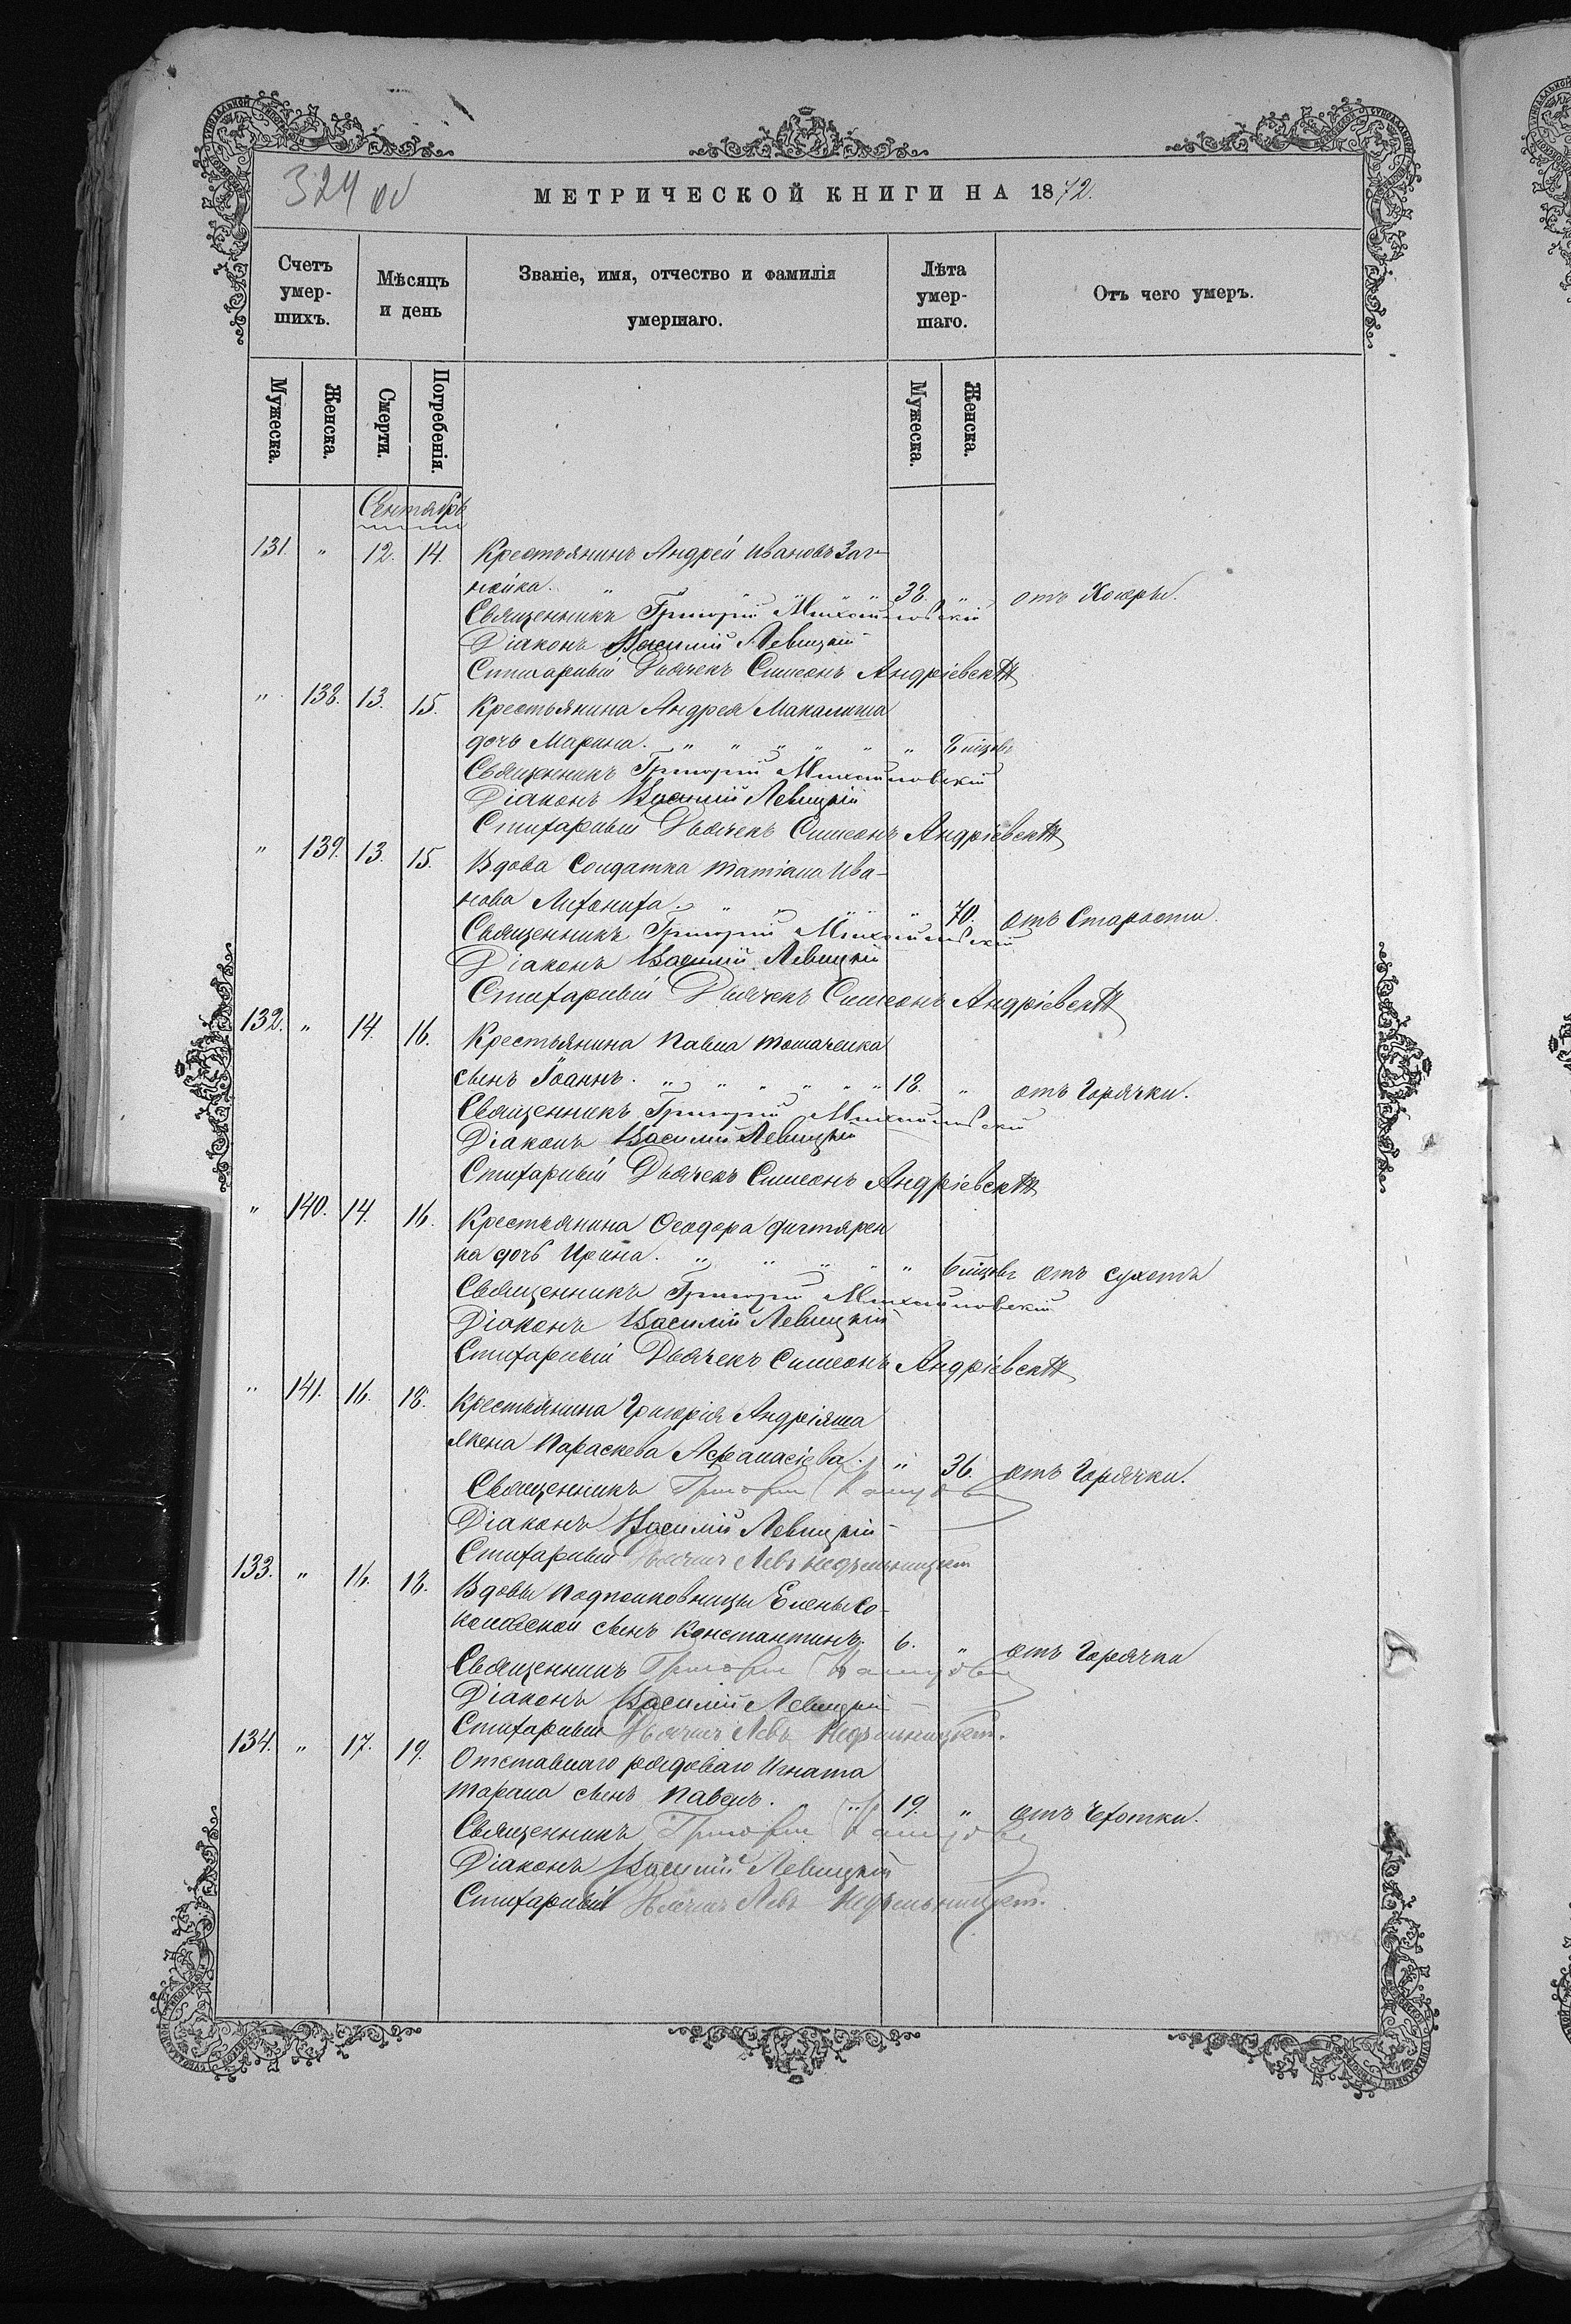 324 об
МЕТРИЧЕСКОЙ КНИГИ НА 1872.
Счетъ умер-шихъ.
Мѣсяцъ и день
Званіе, имя, отчество и фамилія умершаго.
Лѣта умер-шаго.
Отъ чего умеръ.
Мужеска. Женска. Смерти. Погребенія. Мужеска. Женска.
Сентябрь
131. " 12. 14. Крестьянинъ Андрей Ивановъ Заг-
нойка. " " " " " 38. " отъ Холеры.
Священникъ Григорій Михайловскій
Діаконъ Василій Левицкій
Стихарный Дьячекъ Симеонъ Андріевскій
" 138. 13. 15. Крестьянина Андрея Макалиша
дочь Марина. " " " " " "
Священникъ Григорій Михайловскій
Діаконъ Василій Левицкій
Стихарный Дьячекъ Симеонъ Андріевскій
" 139. 13. 15. Вдова Солдатка Татіана Ива-
нова " " " " " 70. отъ Старости.
Священникъ Григорій Михайловскій
Діаконъ Василій Левицкій
Стихарный Дьячекъ Симеонъ Андріевскій
132. " 14. 16. Крестьянина Павла Томаченка
сынъ Іоаннъ. " " " " " " 18. " отъ Горячки.
Священникъ Григорій Михайловскій
Діаконъ Василій Левицкій
Стихарный Дьячекъ Симеонъ Андріевскій
" 140. 14. 16. Крестьянина Ѳеодора Дихтярен
ка дочь Ирина. " " " " " 6 мѣсяцъ отъ сухотъ
Священникъ Григорій Михайловскій
Діаконъ Василій Левицкій
Стихарный Дьячекъ Симеонъ Андріевскій
" 141. 16. 18. Крестьянина Григорія Андріяша
жена Параскева Аѳанасіева. " 36. отъ Горячки.
Священникъ Григорій
Діаконъ Василій Левицкій
Стихарный Дьячекъ Левъ Недѣльницкій
133. " 16. 18. Вдовы Подполковницы Елены Со-
коловской сынъ Константинъ. 6. " отъ Горячки
Священникъ Григорій
Діаконъ Василій Левицкій
Стихарный Дьячекъ Левъ Недѣльницкій.
134. " 17. 19. Отставнаго рядоваго Игната
Тарана сынъ Павелъ. " 19. " отъ Чахотки.
Священникъ Григорій
Діаконъ Василій Левицкій
Стихарный Дьячекъ Левъ Недѣльницкій.